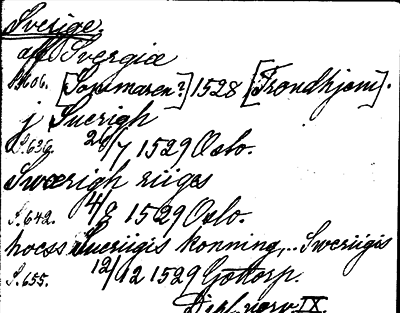 Sverige
aff Svergiæ
S.606. [Sommaren?] 1528 [Trondhjem].
j Suerigh
S.636. 26/7 1529 Oslo.
Swærigh riiges
S.642. 4/8 1529 Oslo.
hoess Sueriigis konning,.. Sweriigis
S.655. 12/12 1529 Gottorp.
Dipl. norv. IX.